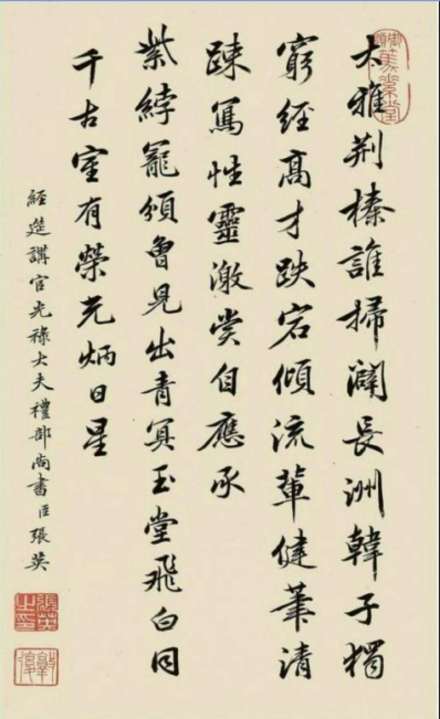 大雅荆榛誰掃闢長洲韓子獨
窮經髙才跌宕傾流輩健筆清
疎寫性靈激賞自應承
紫綍寵頒曾見出青冥玉堂飛白同
千古室有榮光炳日星
經筵講官光祿大夫禮部尚書臣張英
張英之印